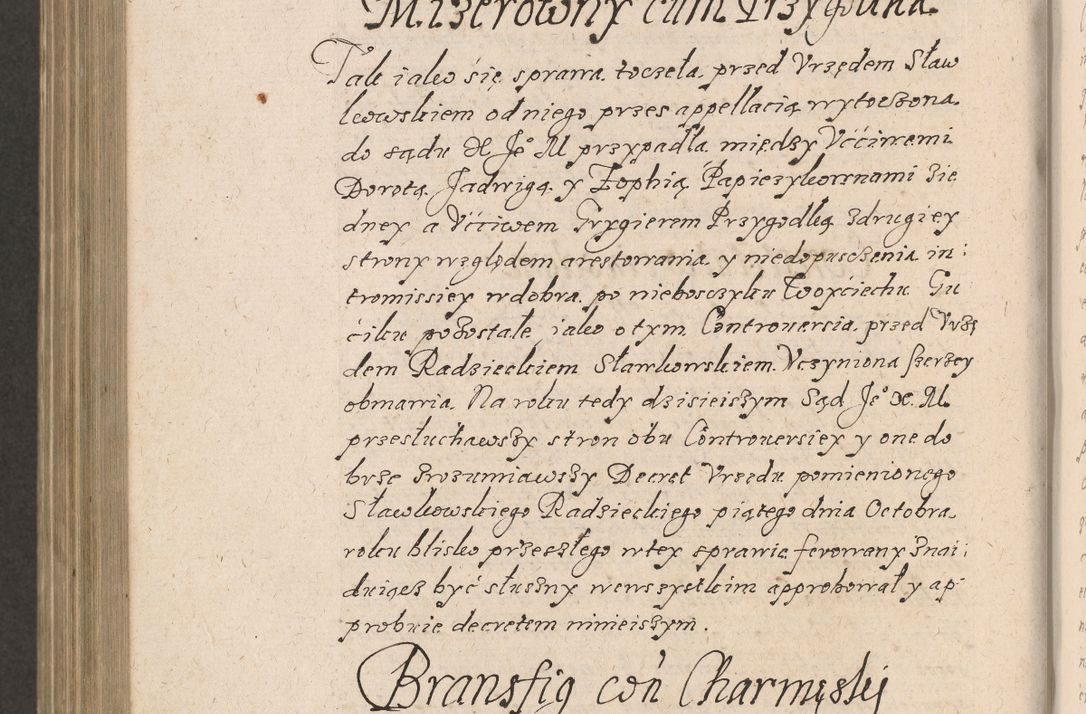 Mizerowny cum Przygodna
Tak iako się sprawa toczeła przed Vrzędem Sław
kowskiem od niego przes appellacią wytoczona
do sądu X Je° M przypadła między Vććiwemi
Dorotą Jadwigą y Zophią Papieżykownami zie
dney a Vććiwem Grygierem Przygodką zdrugiey
strony względem arestowania y niedopusczenia in:
tromissiey w dobra po nieboszczyku Woyciechu Gu
ćiku pozostałe iako o tym Controuersia przed Vrzę
dem Radzieckiem Sławkowskiem Vczyniona szerzey
obmawia. Na roku tedy dzisieiszym Sąd Je° X. M.
przesłuchawszy stron obu Controuersiey y one do
brze zrozumiawszy Decret Vrzędu pomienionego
Sławkowskiego Radzieckiego piątego dnia Octobra
roku blisko przeszłego w tey sprawie ferowany znai:
duiąc być słuszny we wszystkim approbował y ap
probuie decretem ninieiszym.
Bransfig con Charmęski